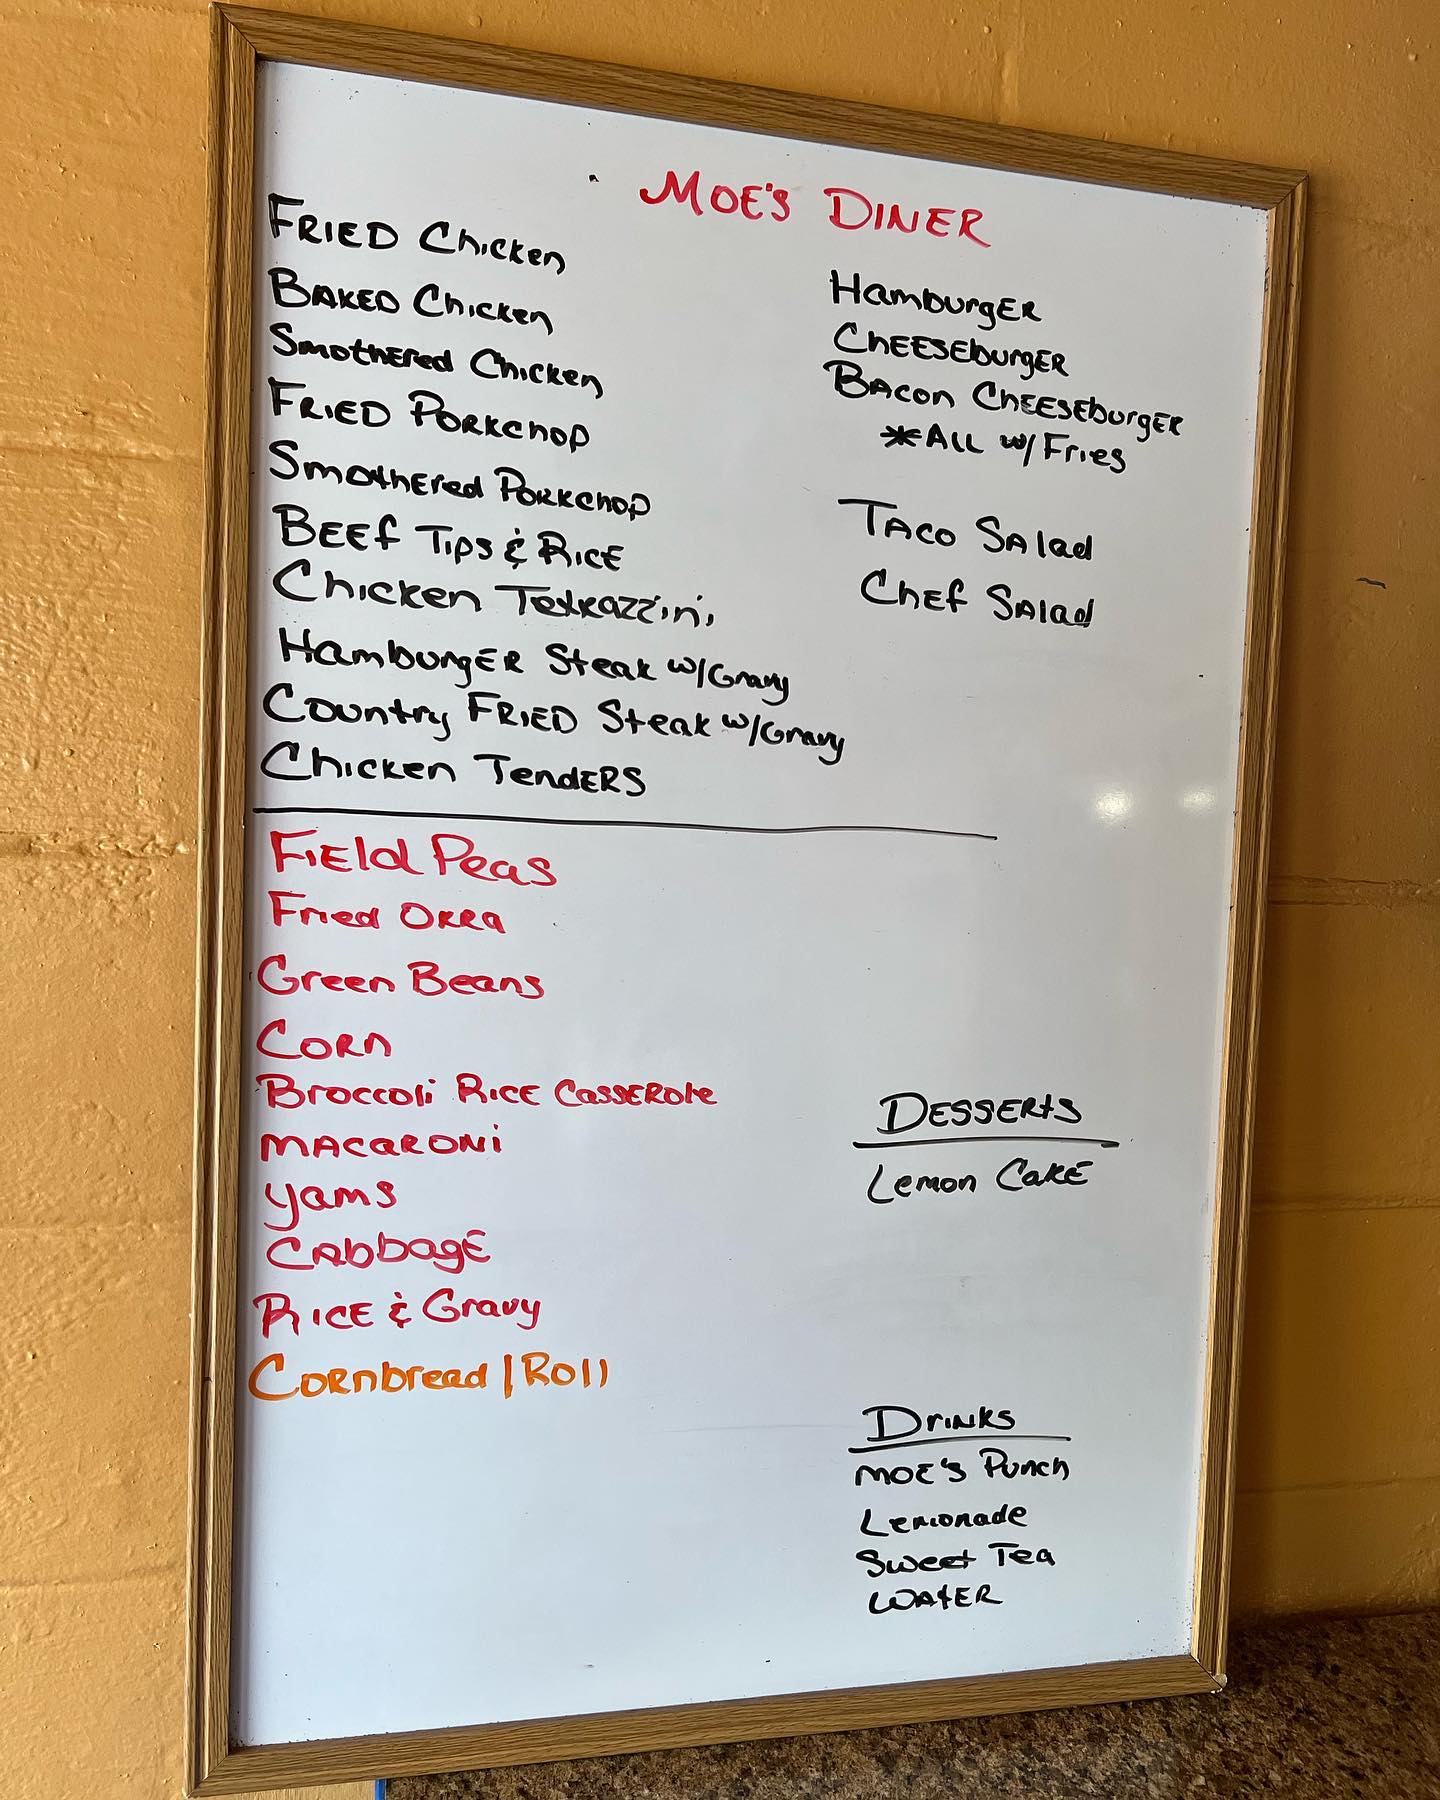 MOE'S DINER
FRIED Chicken
BAKED Chicken
Smothered Chicken
FRIED PORKchop
Smothered PORKchop
BEEf Tips & RICE
Chicken Tetrazzini
HamburgER Steak w/Gravy
Country FRIED Steak w/Gravy
Chicken TendERS
HamburgER
CHEESEburgER
BAcon CHEESEburgER
*ALL w/ Fries
TAco SAlad
Chef SAlad
FiEld Peas
Fried OKRA
Green Beans
CORn
Broccoli RICE CASSEROle
MACARONi
yams
CAbbagE
RICE & Gravy
CORnbread/ROll
DESSERtS
Lemon CakE
DriNKS
MOE'S Punch
Lemonade
Sweet Tea
WAtER